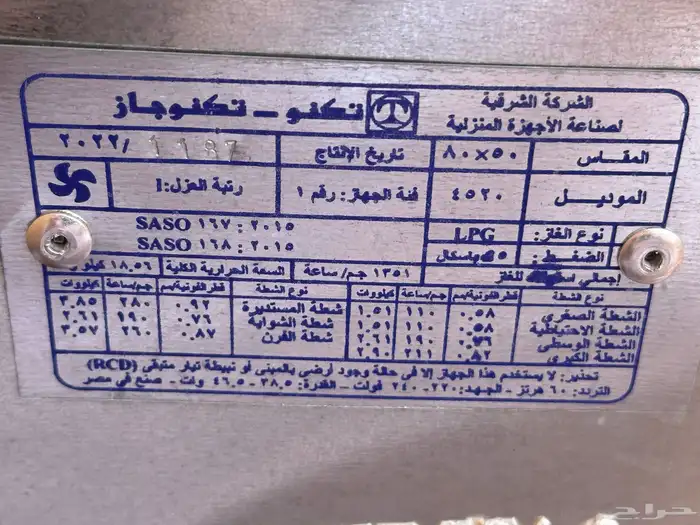 الشركة الشرقية
لصناعة الأجهزة المنزلية
تكنو - تكنوجاز
المقاس ٨٠×٥٠ تاريخ الإنتاج ٢٠٢٢/
الموديل ٤٥٢٠ فئة الجهاز: رقم ١ رتبة العزل: I
نوع الغاز: LPG SASO ١٦٧ : ٢٠١٥
الضغط: باسكال SASO ١٦٨ : ٢٠١٥
إجمالي للغاز ١٣٥١ جم/ساعة السعة الحرارية الكلية ١٨.٥٦ كيلووات
نوع الشعلة قطر الفونية/مم جم/ساعة كيلووات نوع الشعلة قطر الفونية/مم جم/ساعة كيلووات
الشعلة الصغرى ٠.٥٨ ١١٠ ١.٥١ شعلة المستديرة ٠.٩٢ ٢٨٠ ٣.٨٥
الشعلة الاحتياطية ٠.٥٨ ١١٠ ١.٥١ شعلة الشواية ٠.٧٦ ١٩٠ ٢.٦١
الشعلة الوسطى ٠.٧٦ ١٩٠ ٢.٦١ شعلة الفرن ٠.٨٧ ٢٦٠ ٣.٥٧
الشعلة الكبرى ٠.٨٢ ٢١١ ٢.٩٠
تحذير: لا يستخدم هذا الجهاز إلا في حالة وجود أرضي بالمبنى أو نبيطة تيار متبقي (RCD)
التردد: ٦٠ هرتز - الجهد: ٢٢٠-٢٤٠ فولت - القدرة: ٣٨.٥ - ٤٦.٥ وات - صنع في مصر
حراج